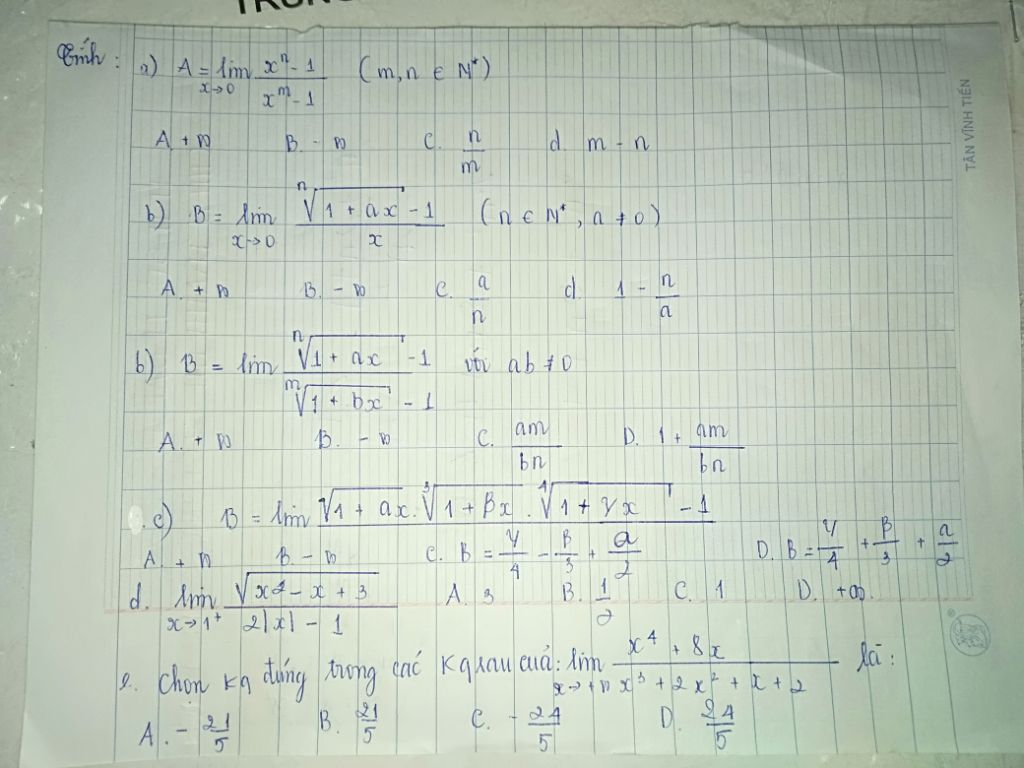 TRUNG
TÂN VĨNH TIẾN
Tính : a) A = lim x→0 (xⁿ - 1)/(xᵐ - 1) (m, n ∈ N*)
A. + ∞ B. - ∞ C. n/m d. m - n
b) B = lim x→0 (ⁿ√(1 + ax) - 1)/x (n ∈ N*, a ≠ 0)
A. + ∞ B. - ∞ C. a/n d. 1 - n/a
b) B = lim (ⁿ√(1 + ax) - 1)/(ᵐ√(1 + bx) - 1) với ab ≠ 0
A. + ∞ B. - ∞ C. am/bn D. 1 + am/bn
c) B = lim √(1 + ax) . ³√(1 + βx) . ⁴√(1 + γx) - 1
A. + ∞ B. - ∞ C. B = γ/4 - β/3 + a/2 D. B = γ/4 + β/3 + a/2
d. lim x→1⁺ √(x2 - x + 3)/(2|x| - 1) A. 3 B. 1/2 C. 1 D. +∞.
e. Chọn kq đúng trong các kq sau của: lim x→+∞ (x⁴ + 8x)/(x³ + 2x² + x + 2) là :
A. - 21/5 B. 21/5 C. - 24/5 D. 24/5